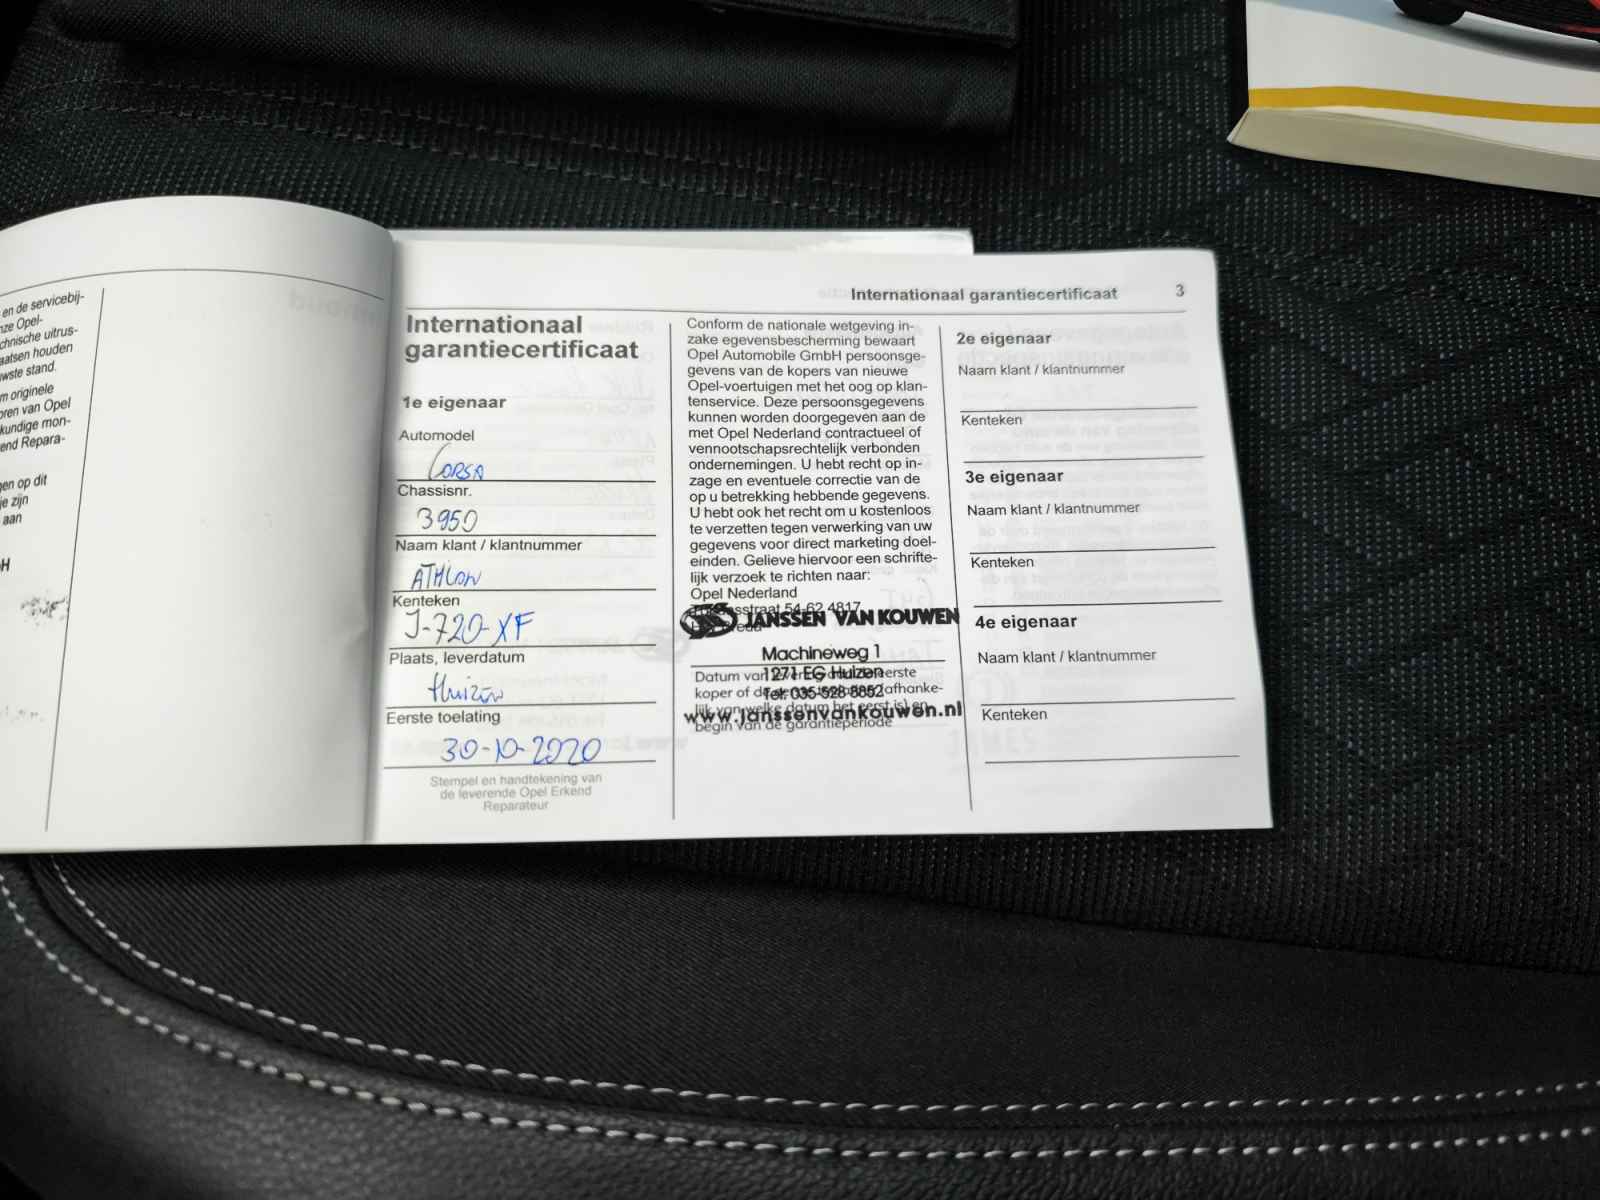 en de servicebij-
nze Opel-
chnische uitrus-
aatsen houden
wste stand.
m originele
oren van Opel
kundige mon-
end Repara-
gen op dit
je zijn
aan
Internationaal garantiecertificaat 3
Internationaal
garantiecertificaat
1e eigenaar
Automodel
CORSA
Chassisnr.
3950
Naam klant / klantnummer
ATHLON
Kenteken
J-720-XF
Plaats, leverdatum
Huizen
Eerste toelating
30-10-2020
Stempel en handtekening van
de leverende Opel Erkend
Reparateur
Conform de nationale wetgeving in-
zake egevensbescherming bewaart
Opel Automobile GmbH persoonsge-
gevens van de kopers van nieuwe
Opel-voertuigen met het oog op klan-
tenservice. Deze persoonsgegevens
kunnen worden doorgegeven aan de
met Opel Nederland contractueel of
vennootschapsrechtelijk verbonden
ondernemingen. U hebt recht op in-
zage en eventuele correctie van de
op u betrekking hebbende gegevens.
U hebt ook het recht om u kostenloos
te verzetten tegen verwerking van uw
gegevens voor direct marketing doel-
einden. Gelieve hiervoor een schrifte-
lijk verzoek te richten naar:
Opel Nederland
54-62 4817
JANSSEN VAN KOUWEN
Machineweg 1
1271 EG Huizen
Tel. 035-528 8852
www.janssenvankouwen.nl
Datum van eerste
koper of de (afhanke-
lijk van welke datum het eerst is) en
begin van de garantieperiode
2e eigenaar
Naam klant / klantnummer
Kenteken
3e eigenaar
Naam klant / klantnummer
Kenteken
4e eigenaar
Naam klant / klantnummer
Kenteken